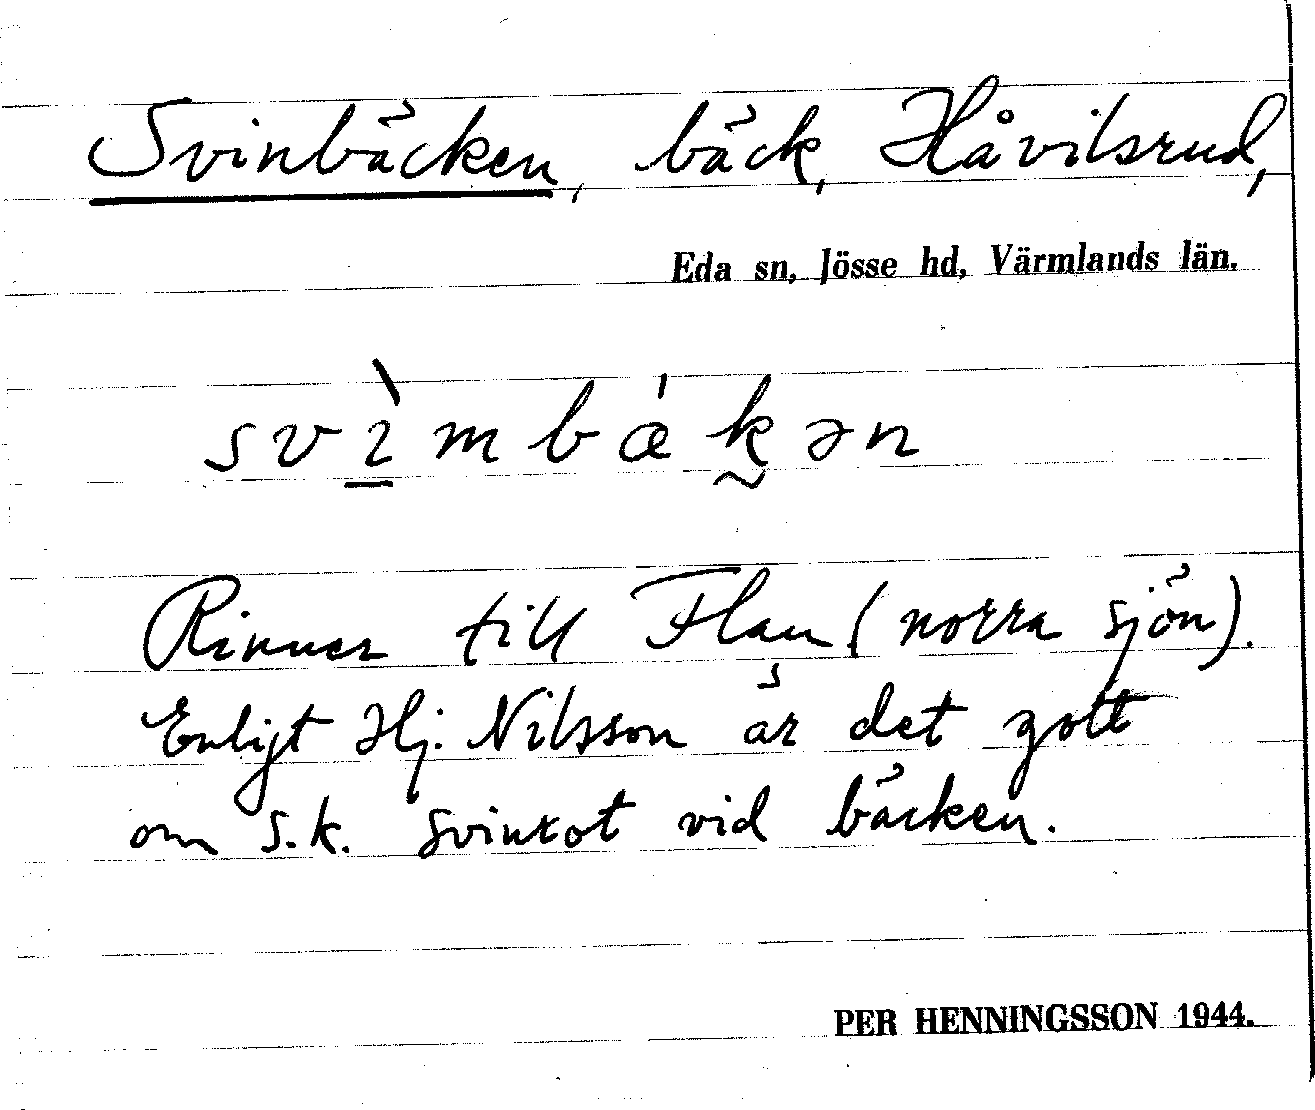 Svinbäcken, bäck, Håvilsrud,
Eda sn, Jösse hd, Värmlands län.
svı̱̀mbǽk̰ən
Rinner till Flan (norra sjön).
Enligt Hj. Nilsson är det gott
om s.k. svinrot vid bäcken.
PER HENNINGSSON 1944.